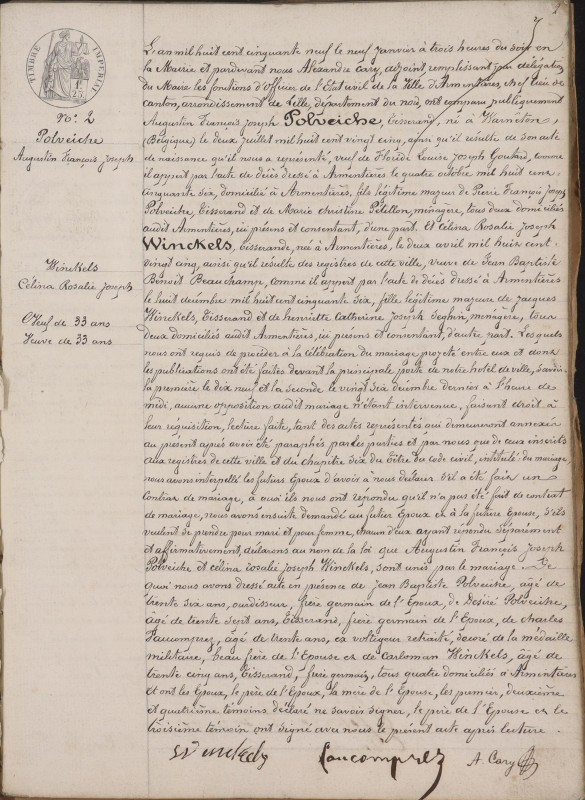 7
TIMBRE IMPERIAL
N°. 2
Polveiche
Augustin François Joseph
Winckels
Célina Rosalie Joseph
Veuf de 33 ans
Veuve de 33 ans
L'an mil huit cent cinquante neuf le neuf Janvier à trois heures du soir en
la Mairie et pardevant nous Alexandre Cary, adjoint remplissant par délégation
du Maire les fonctions d'Officier de l'Etat civil de la Ville d'Armentières, chef lieu de
canton, arrondissement de Lille, département du nord, ont comparu publiquement
Augustin François Joseph Polveiche, Tisserand, né à Warneton,
(Belgique) le deux juillet mil huit cent vingt cinq, ainsi qu'il résulte de son acte
de naissance qu'il nous a représenté, veuf de Floride Louise Joseph comme
il appert par l'acte de décès dressé à Armentières le quatre octobre mil huit cent
cinquante six, domicilié à Armentières, fils légitime majeur de Pierre François Joseph
Polveiche, Tisserand et de Marie Christine Pétillon, ménagère, tous deux domiciliés
audit Armentières, ici présens et consentant, d'une part. Et Célina Rosalie Joseph
Winckels, Tisserande, née à Armentières, le deux avril mil huit cent
vingt cinq, ainsi qu'il résulte des registres de cette ville, veuve de Jean Baptiste
Benoît Beauchamp, comme il appert par l'acte de décès dressé à Armentières
le huit décembre mil huit cent cinquante six, fille légitime majeure de Jacques
Winckels, Tisserand et de henriette Catherine Joseph Seghin, ménagère, tous
deux domiciliés audit Armentières, ici présens et consentant, d'autre part. Lesquels
nous ont requis de procéder à la célébration du mariage projeté entre eux et dont
les publications ont été faites devant la principale porte de notre hôtel de ville, savoir:
la première le dix neuf et la seconde le vingt six décembre dernier à l'heure de
midi, aucune opposition audit mariage n'étant intervenue, faisant droit à
leur réquisition, lecture faite, tant des actes représentés qui demeureront annexés
au présent après avoir été paraphés par les parties et par nous que de ceux inscrits
aux registres de cette ville et du chapitre six du titre du code civil, intitulé du mariage,
nous avons interpellé les futurs Epoux d'avoir à nous déclarer s'il a été fait un
contrat de mariage, à quoi ils nous ont répondu qu'il n'a pas été fait de contrat
de mariage, nous avons ensuite demandé au futur Epoux et à la future Epouse, s'ils
veulent se prendre pour mari et pour femme, chacun d'eux ayant répondu séparément
et affirmativement, déclarons au nom de la loi que Augustin François Joseph
Polveiche et Célina rosalie Joseph Winckels, sont unis par le mariage. De
quoi nous avons dressé acte en présence de Jean Baptiste Polveiche, âgé de
trente six ans, ourdisseur, frère germain de l'Epoux, de Désiré Polveiche,
âgé de trente sept ans, Tisserand, frère germain de l'Epoux, de charles
Faucomprez, âgé de trente ans, ex voltigeur retraité, décoré de la médaille
militaire, beau frère de l'Epouse et de Carloman Winckels, âgé de
trente cinq ans, Tisserand, frère germain, tous quatre domiciliés à Armentières
et ont les Epoux, le père de l'Epoux, la mère de l'Epouse, les premier, deuxième
et quatrième témoins déclaré ne savoir signer, le père de l'Epouse et le
troisième témoin ont signé avec nous le présent acte après lecture.
Winckels Faucomprez A Cary